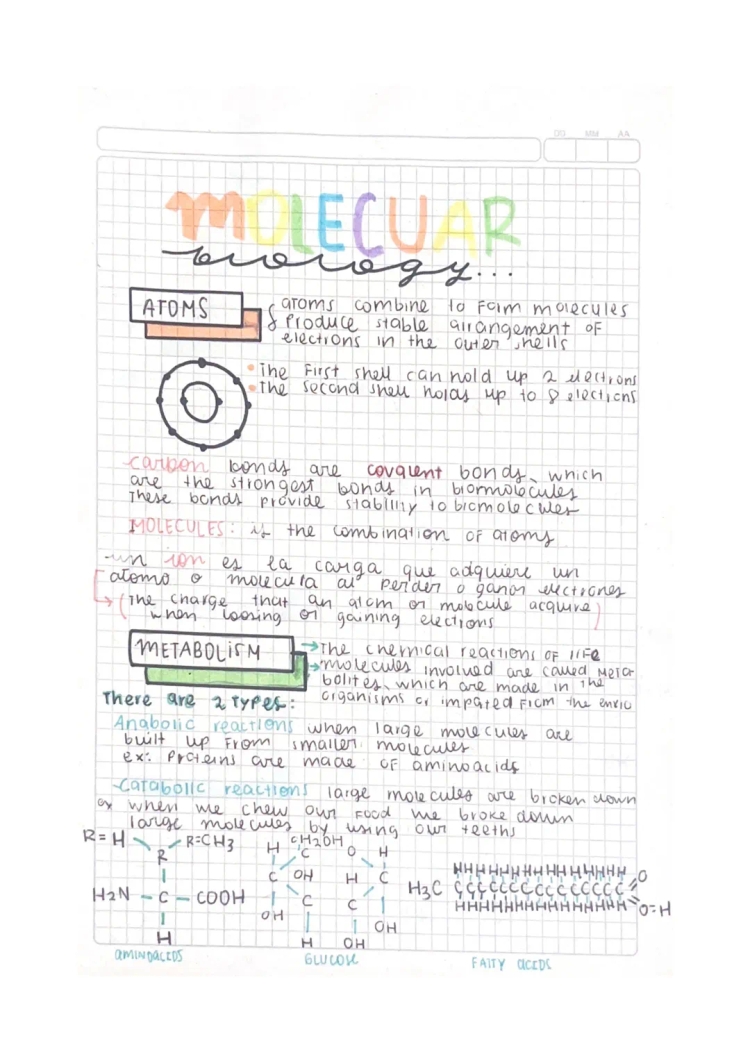 DD MM AA
MOLECUAR
biology...
ATOMS
atoms combine to form molecules
& Produce stable arrangement of
electrons in the outer shells
• The first shell can hold up 2 electrons
• The second shell holds up to 8 electrons
Carbon bonds are covalent bonds, which
are the strongest bonds in biomolecules
These bonds provide stability to biomolecules
MOLECULES: is the combination of atoms
un ion es la carga que adquiere un
atomo o molecula al perder o ganar electrones
(The charge that an atom or molecule acquire
when loosing or gaining electrons)
METABOLISM
→ The chemical reactions of life
→ molecules involved are called meta
bolites, which are made in the
There are 2 types:
organisms or impated from the enviu
Anabolic reactions when large molecules are
built up from smaller molecules
ex: Proteins are made of aminoacids
Catabolic reactions large molecules are broken down
ex when we chew our food we broke down
large molecules by using our teeths
R=H R=CH3
R
H2N - C - COOH
H
AMINOACIDS
H CH2OH O H
C
C OH H C
C C
OH OH
H OH
GLUCOSE
HHHHHHHHHHHHHH O
H3C CCCCCCCCCCCCCC
HHHHHHHHHHHHHH O=H
FATTY ACIDS